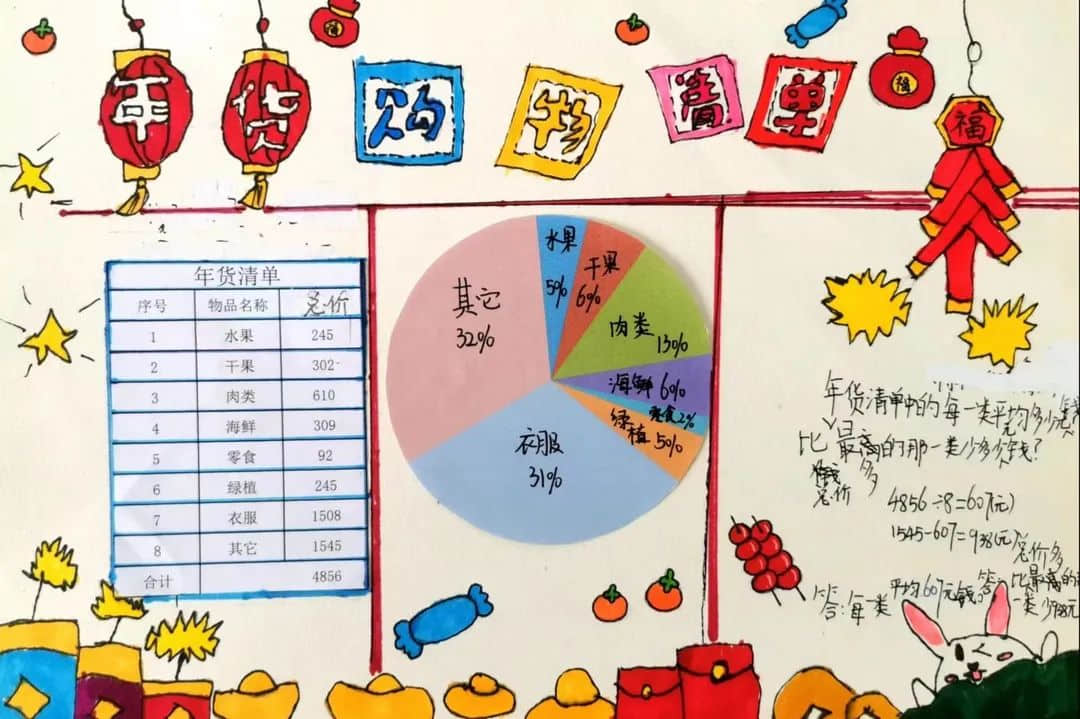 年货购物清单
福
福
年货清单
序号 物品名称 总价
1 水果 245
2 干果 302
3 肉类 610
4 海鲜 309
5 零食 92
6 绿植 245
7 衣服 1508
8 其它 1545
合计 4856
水果
5%
干果
6%
肉类
13%
海鲜 6%
零食 2%
绿植 5%
衣服
31%
其它
32%
年货清单中的每一类平均多少元
比最高的那一类少多少钱?
总价 多
4856÷8=607(元)
1545-607=938(元)
总价多
答:每一类平均607元钱。答:比最高的
一类少938元